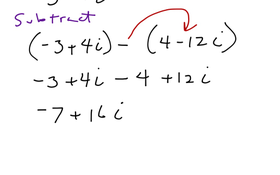 Subtract
(-3+4i) - (4-12i)
-3+4i - 4 +12i
-7+16i